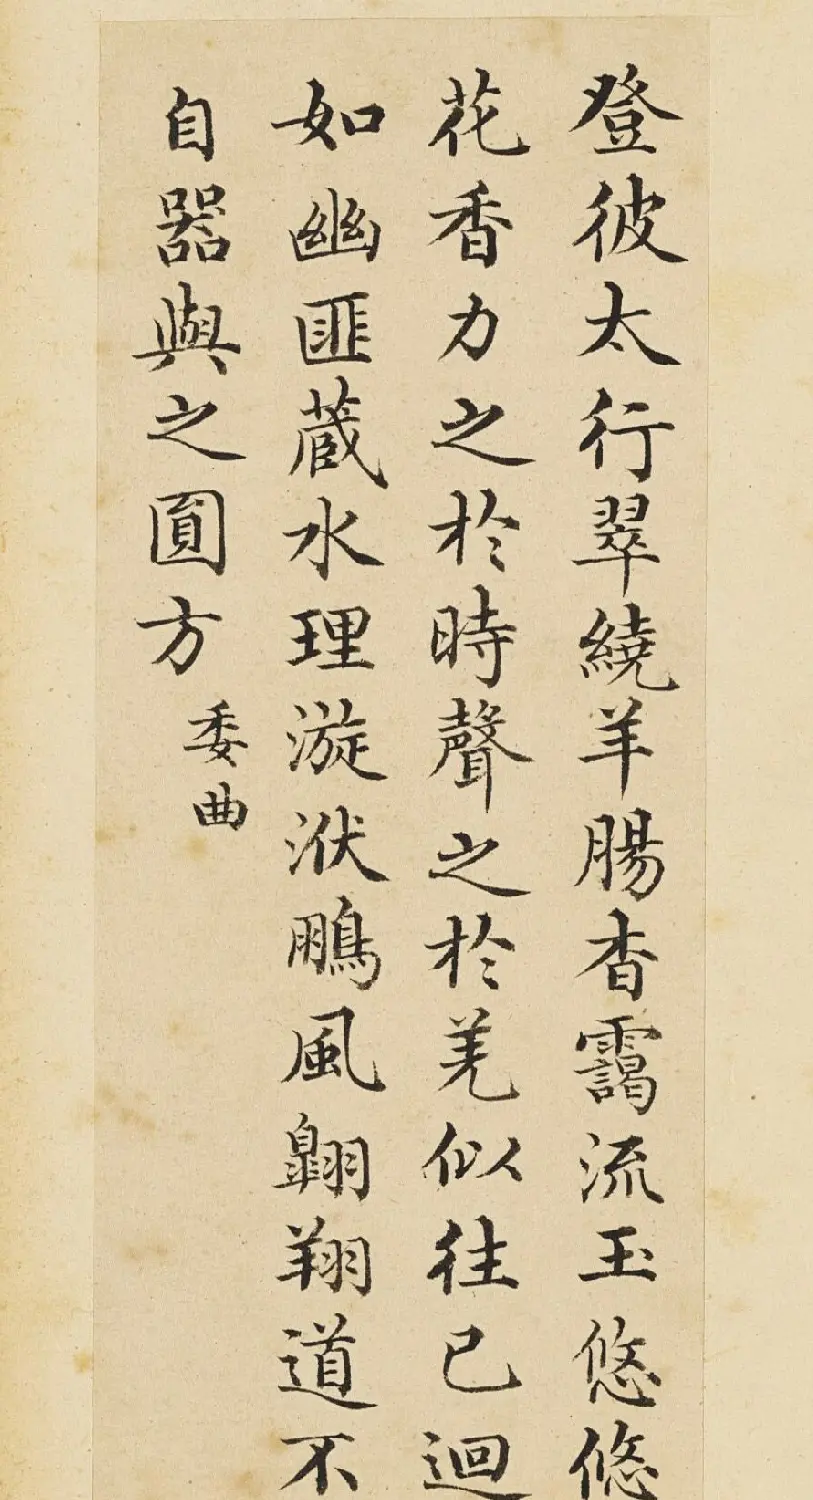 登彼太行翠繞羊腸杳靄流玉悠悠
花香力之於時聲之於羌似往已迴
如幽匪藏水理漩洑鵬風翺翔道不
自器與之圓方
委曲